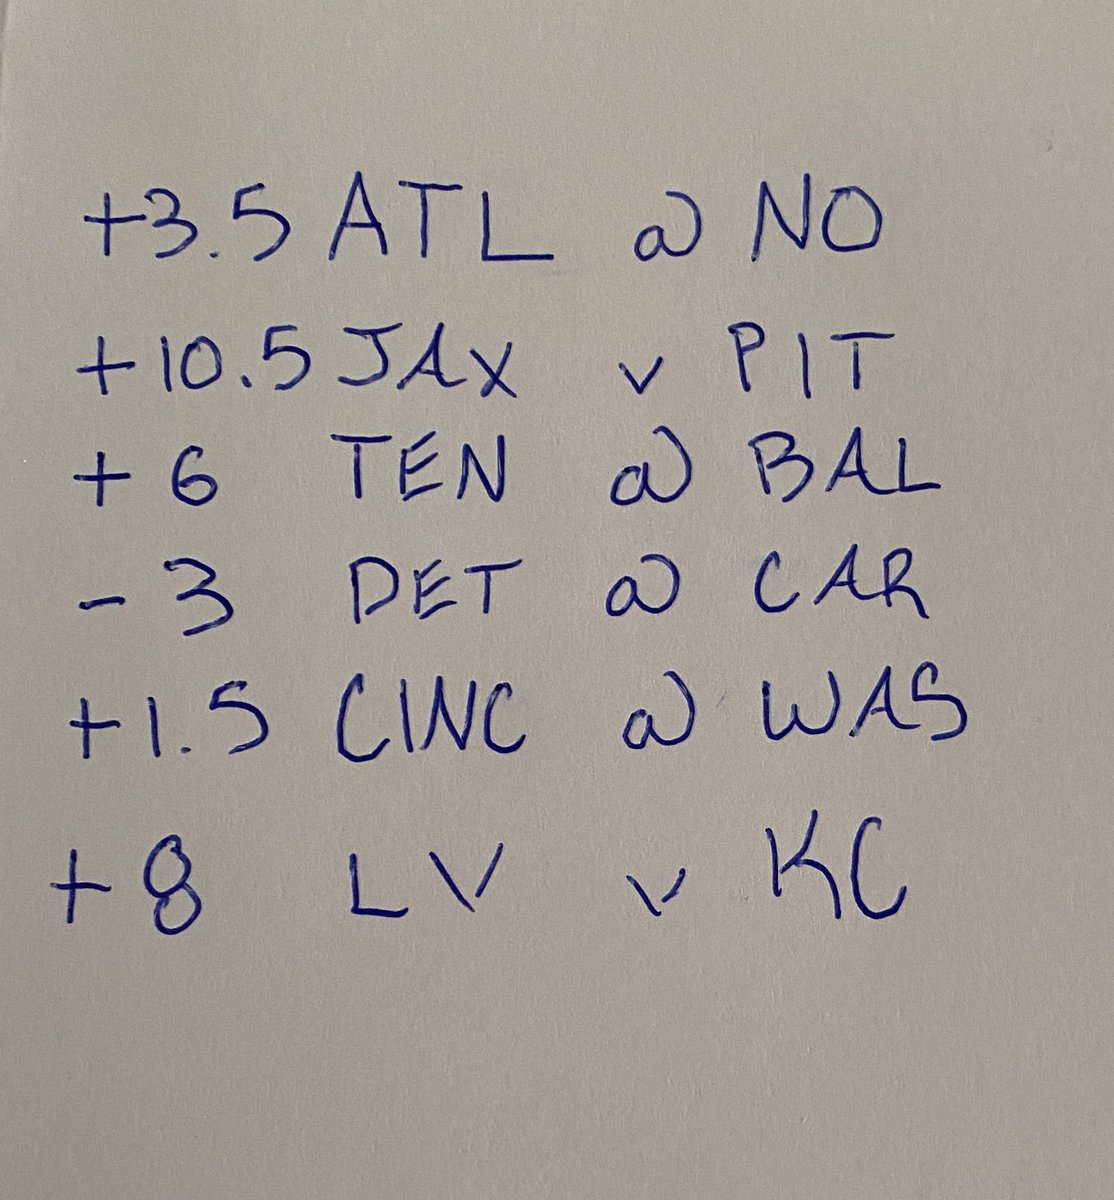 +3.5 ATL @ NO
+10.5 JAX v PIT
+6 TEN @ BAL
-3 DET @ CAR
+1.5 CINC @ WAS
+8 LV v KC